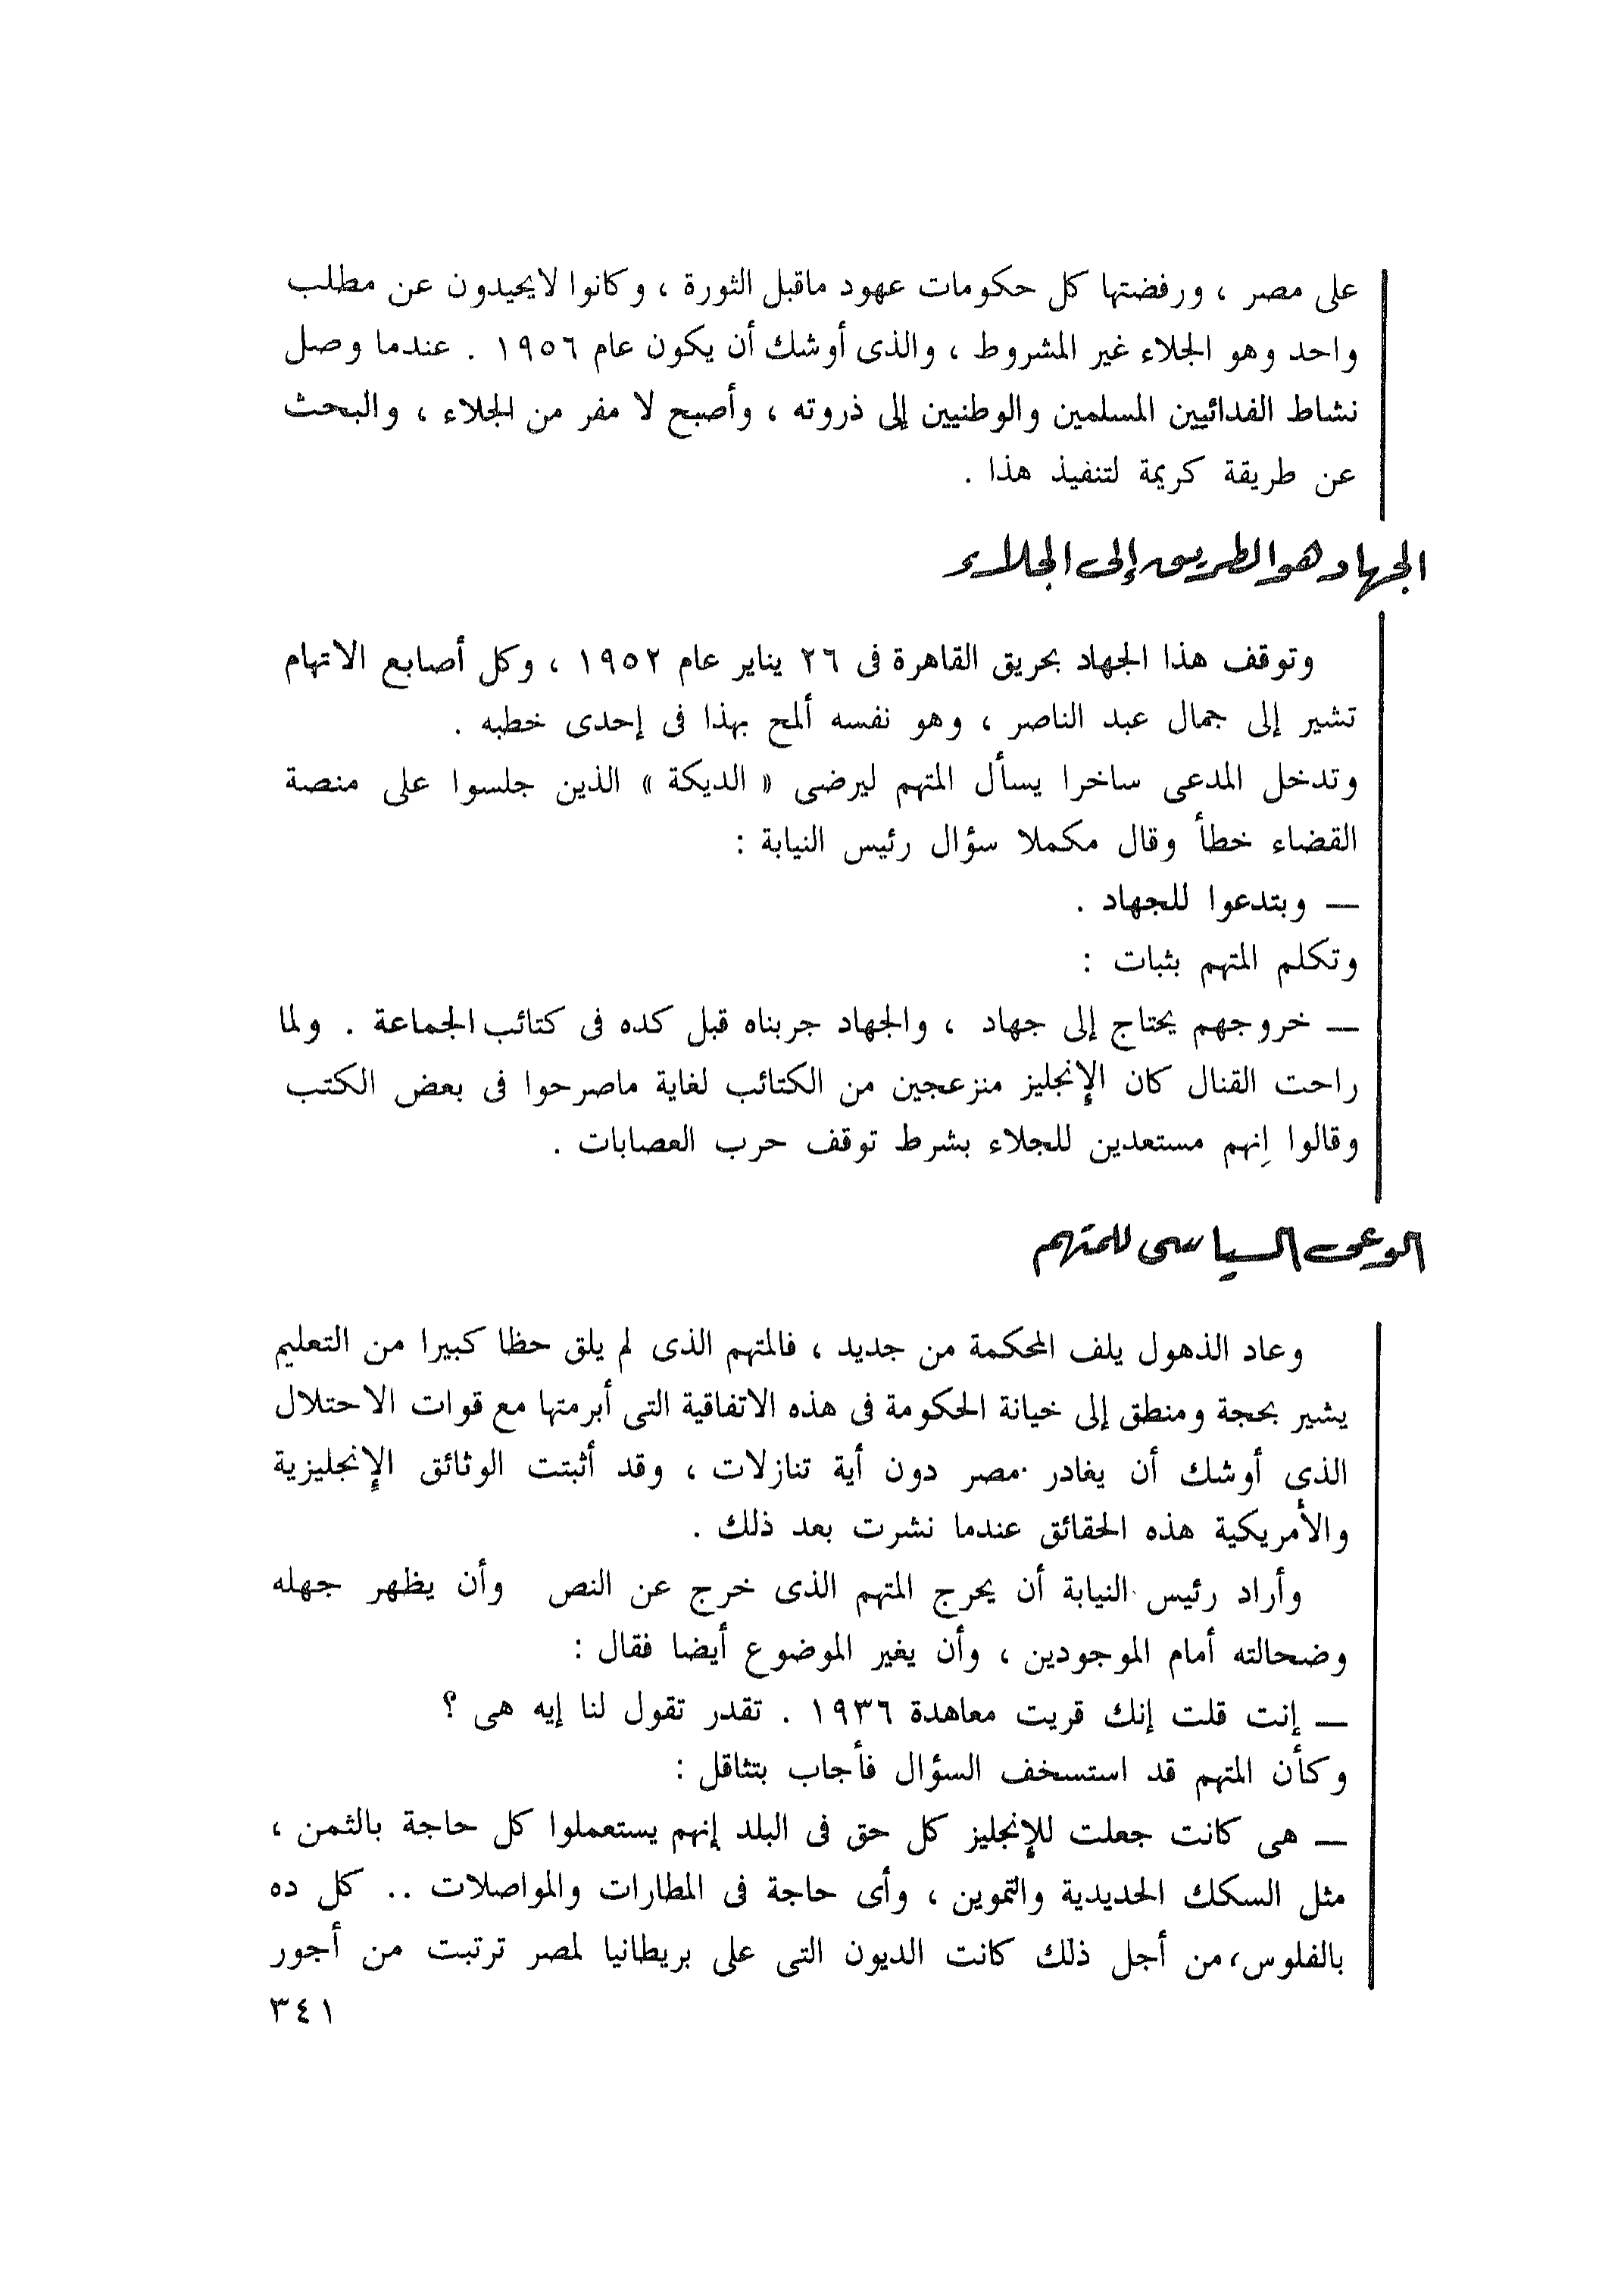 على مصر ، ورفضتها كل حكومات عهود ماقبل الثورة ، وكانوا لايحيدون عن مطلب
واحد وهو الجلاء غير المشروط ، والذى أوشك أن يكون عام ١٩٥٦ . عندما وصل
نشاط الفدائيين المسلمين والوطنيين إلى ذروته ، وأصبح لا مفر من الجلاء ، والبحث
عن طريقة كريمة لتنفيذ هذا .
الجهاد هو الطريق إلى الجلاء
وتوقف هذا الجهاد بحريق القاهرة فى ٢٦ يناير عام ١٩٥٢ ، وكل أصابع الاتهام
تشير إلى جمال عبد الناصر ، وهو نفسه ألمح بهذا فى إحدى خطبه .
وتدخل المدعى ساخرا يسأل المتهم ليرضى « الديكة » الذين جلسوا على منصة
القضاء خطأ وقال مكملا سؤال رئيس النيابة :
— وبتدعوا للجهاد .
وتكلم المتهم بثبات :
— خروجهم يحتاج إلى جهاد ، والجهاد جربناه قبل كده فى كتائب الجماعة . ولما
راحت القنال كان الإنجليز منزعجين من الكتائب لغاية ماصرحوا فى بعض الكتب
وقالوا إنهم مستعدين للجلاء بشرط توقف حرب العصابات .
الوعى السياسى للمتهم
وعاد الذهول يلف المحكمة من جديد ، فالمتهم الذى لم يلق حظا كبيرا من التعليم
يشير بحجة ومنطق إلى خيانة الحكومة فى هذه الاتفاقية التى أبرمتها مع قوات الاحتلال
الذى أوشك أن يغادر مصر دون أية تنازلات ، وقد أثبتت الوثائق الإنجليزية
والأمريكية هذه الحقائق عندما نشرت بعد ذلك .
وأراد رئيس النيابة أن يحرج المتهم الذى خرج عن النص وأن يظهر جهله
وضحالته أمام الموجودين ، وأن يغير الموضوع أيضا فقال :
— إنت قلت إنك قريت معاهدة ١٩٣٦ . تقدر تقول لنا إيه هى ؟
وكأن المتهم قد استسخف السؤال فأجاب بتثاقل :
— هى كانت جعلت للإنجليز كل حق فى البلد إنهم يستعملوا كل حاجة بالثمن ،
مثل السكك الحديدية والتموين ، وأى حاجة فى المطارات والمواصلات .. كل ده
بالفلوس، من أجل ذلك كانت الديون التى على بريطانيا لمصر ترتبت من أجور
٣٤١